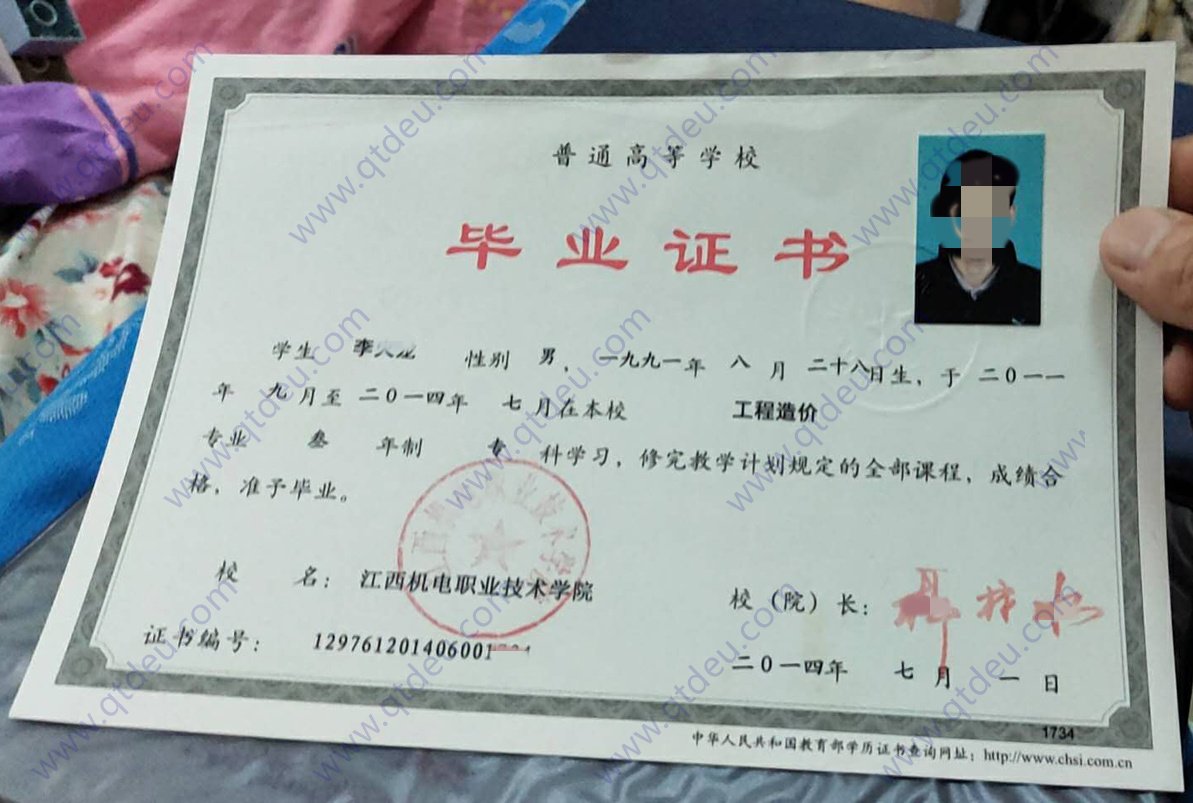 普通高等学校
毕业证书
学生 李 性别 男，一九九一年 八 月 二十八日生，于 二〇一一
年 九月至 二〇一四年 七月在本校 工程造价
专业 叁 年制 专 科学习，修完教学计划规定的全部课程，成绩合
格，准予毕业。
校 名：江西机电职业技术学院
校（院）长：
证书编号：129761201406001
二〇一四年 七 月 一 日
1734
中华人民共和国教育部学历证书查询网址：http://www.chsi.com.cn
www.qtdeu.com